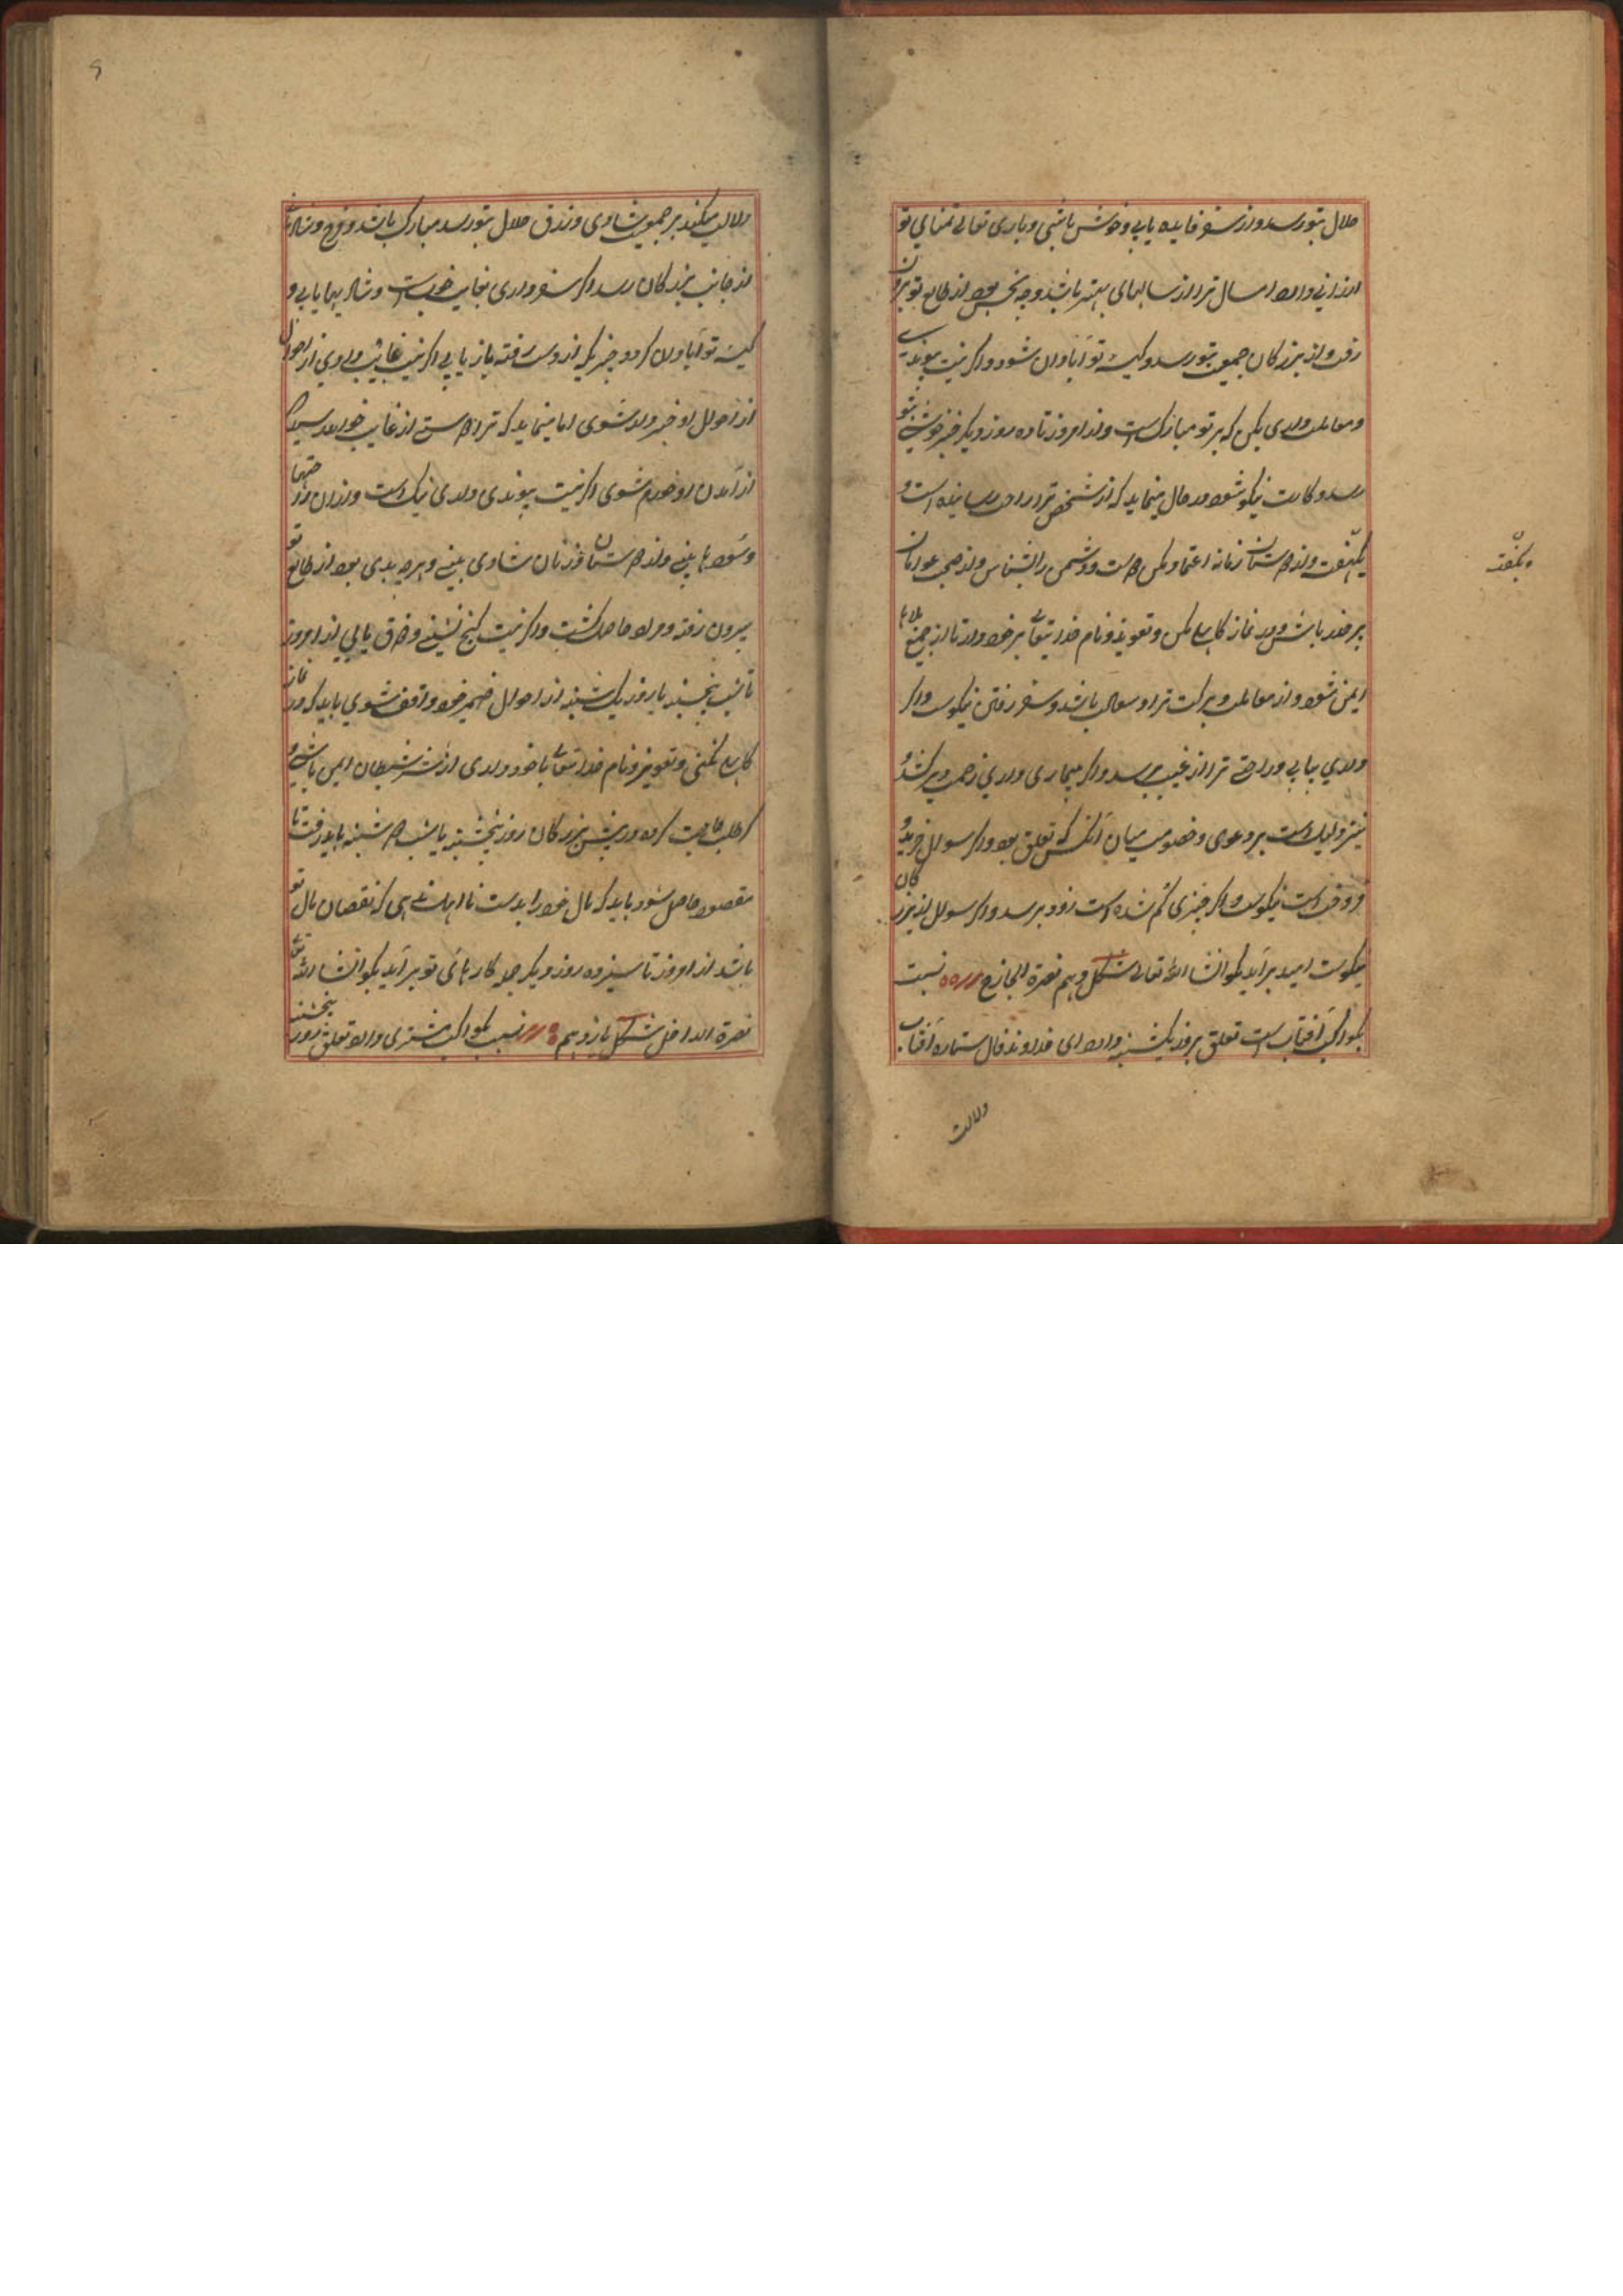 حلال بتو رسد و از سفر فایده یابی و خوش باشی و باری تعالی تمنای تو
ارزانی دارد امسال ترا از سالهای بهتر باشد و چه نحس بود از طالع تو بیرون
رفت و از بزرگان جمعیت بتو رسد و کیسه تو آبادان شود و اگر نیت پیوندی
و معاملت داری بکن که بر تو مبارکست و از امروز تا ده روز دیگر خبر خوش بتو
رسد و کارت نیکو شود و رمال مینماید که از شخص ترا راحت رسانیده است و
یکهفت و از دوستان زمانه اعتماد مکن دوست و دشمن را بشناس و از صحبت عورتان
بر حذر باش و در نماز کاهلی مکن و تعویذ و نام خدایتعالی بر خود دار تا از جمیع بلاها
ایمن شوی و از معاملت و برکت ترا وصال باشد و سفر رفتن نیکوست و اگر
داری بیابی و راحتی ترا از غیب برسد و اگر بیماری داری زحمت دیر کشد و
نیز دلیل است بر دعوی و خصومت میان آنکس که تعلق بود و اگر سوال خرید و
فروخت است نیکوست و اگر چیزی گم شده است زود برسد و اگر سوال از بزرگان
نیکوست امید برآید بگو انشاالله تعالی شکل دهم نصرة الخارج نسبت
بکواکب آفتاب است تعلق بروز یکشنبه دارد ای خداوند فال ستاره آفتاب
دلالت
بکفت
دلالت میکند بر جمعیت شادی و رزق حلال بتو رسد مبارک باشد و فرح و شادی
از جانب بزرگان رسد و اگر سفر داری بغایت خوبست و شادیها یابی و
کیسه تو آبادان گردد چیزیکه از دست رفته باز یابی اگر نیت غائب داری از احوال
از احوال او خبردار شوی اما مینماید که ترا دوستی از غایب خواهد رسید که
از آمدن او خورم شوی اگر نیت پیوندی داری نیک است و از آن راحتها
و سودها بینی و از دوستان و زنان شادی بینی و هر چه بدی بود از طالع تو
بیرون رفته و مراد حاصل گشت و اگر نیت گنج بینی و فرق یابی از امروز
تا شب پنجشنبه یا روز یکشنبه از احوال ضمیر خود واقف شوی باید که در نماز
کاهلی نکنی و تعویذ و نام خدایتعالی با خود داری از شر شیطان ایمن باشی و
گر طلب حاجت کرده در پیش بزرگان روز پنجشنبه یا شب دوشنبه باید رفت تا
مقصود حاصل شود باید که مال خود را بدست نااهلان ندهی که نقصان مال تو
باشد از امروز تا سیزده روز دیگر جمله کارهای تو برآید بگو انشاالله تعالی
نصرة الداخل شکل یازدهم نسبت بکواکب مشتری دارد تعلق بروز پنجشنبه